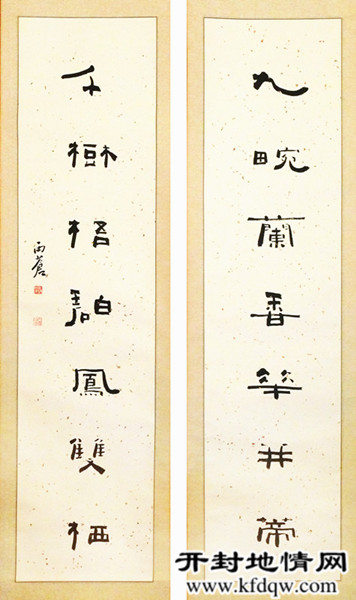 九畹蘭香華并蒂
千樹梧碧鳳雙栖
蒼
开封地情网
www.kfdqw.com